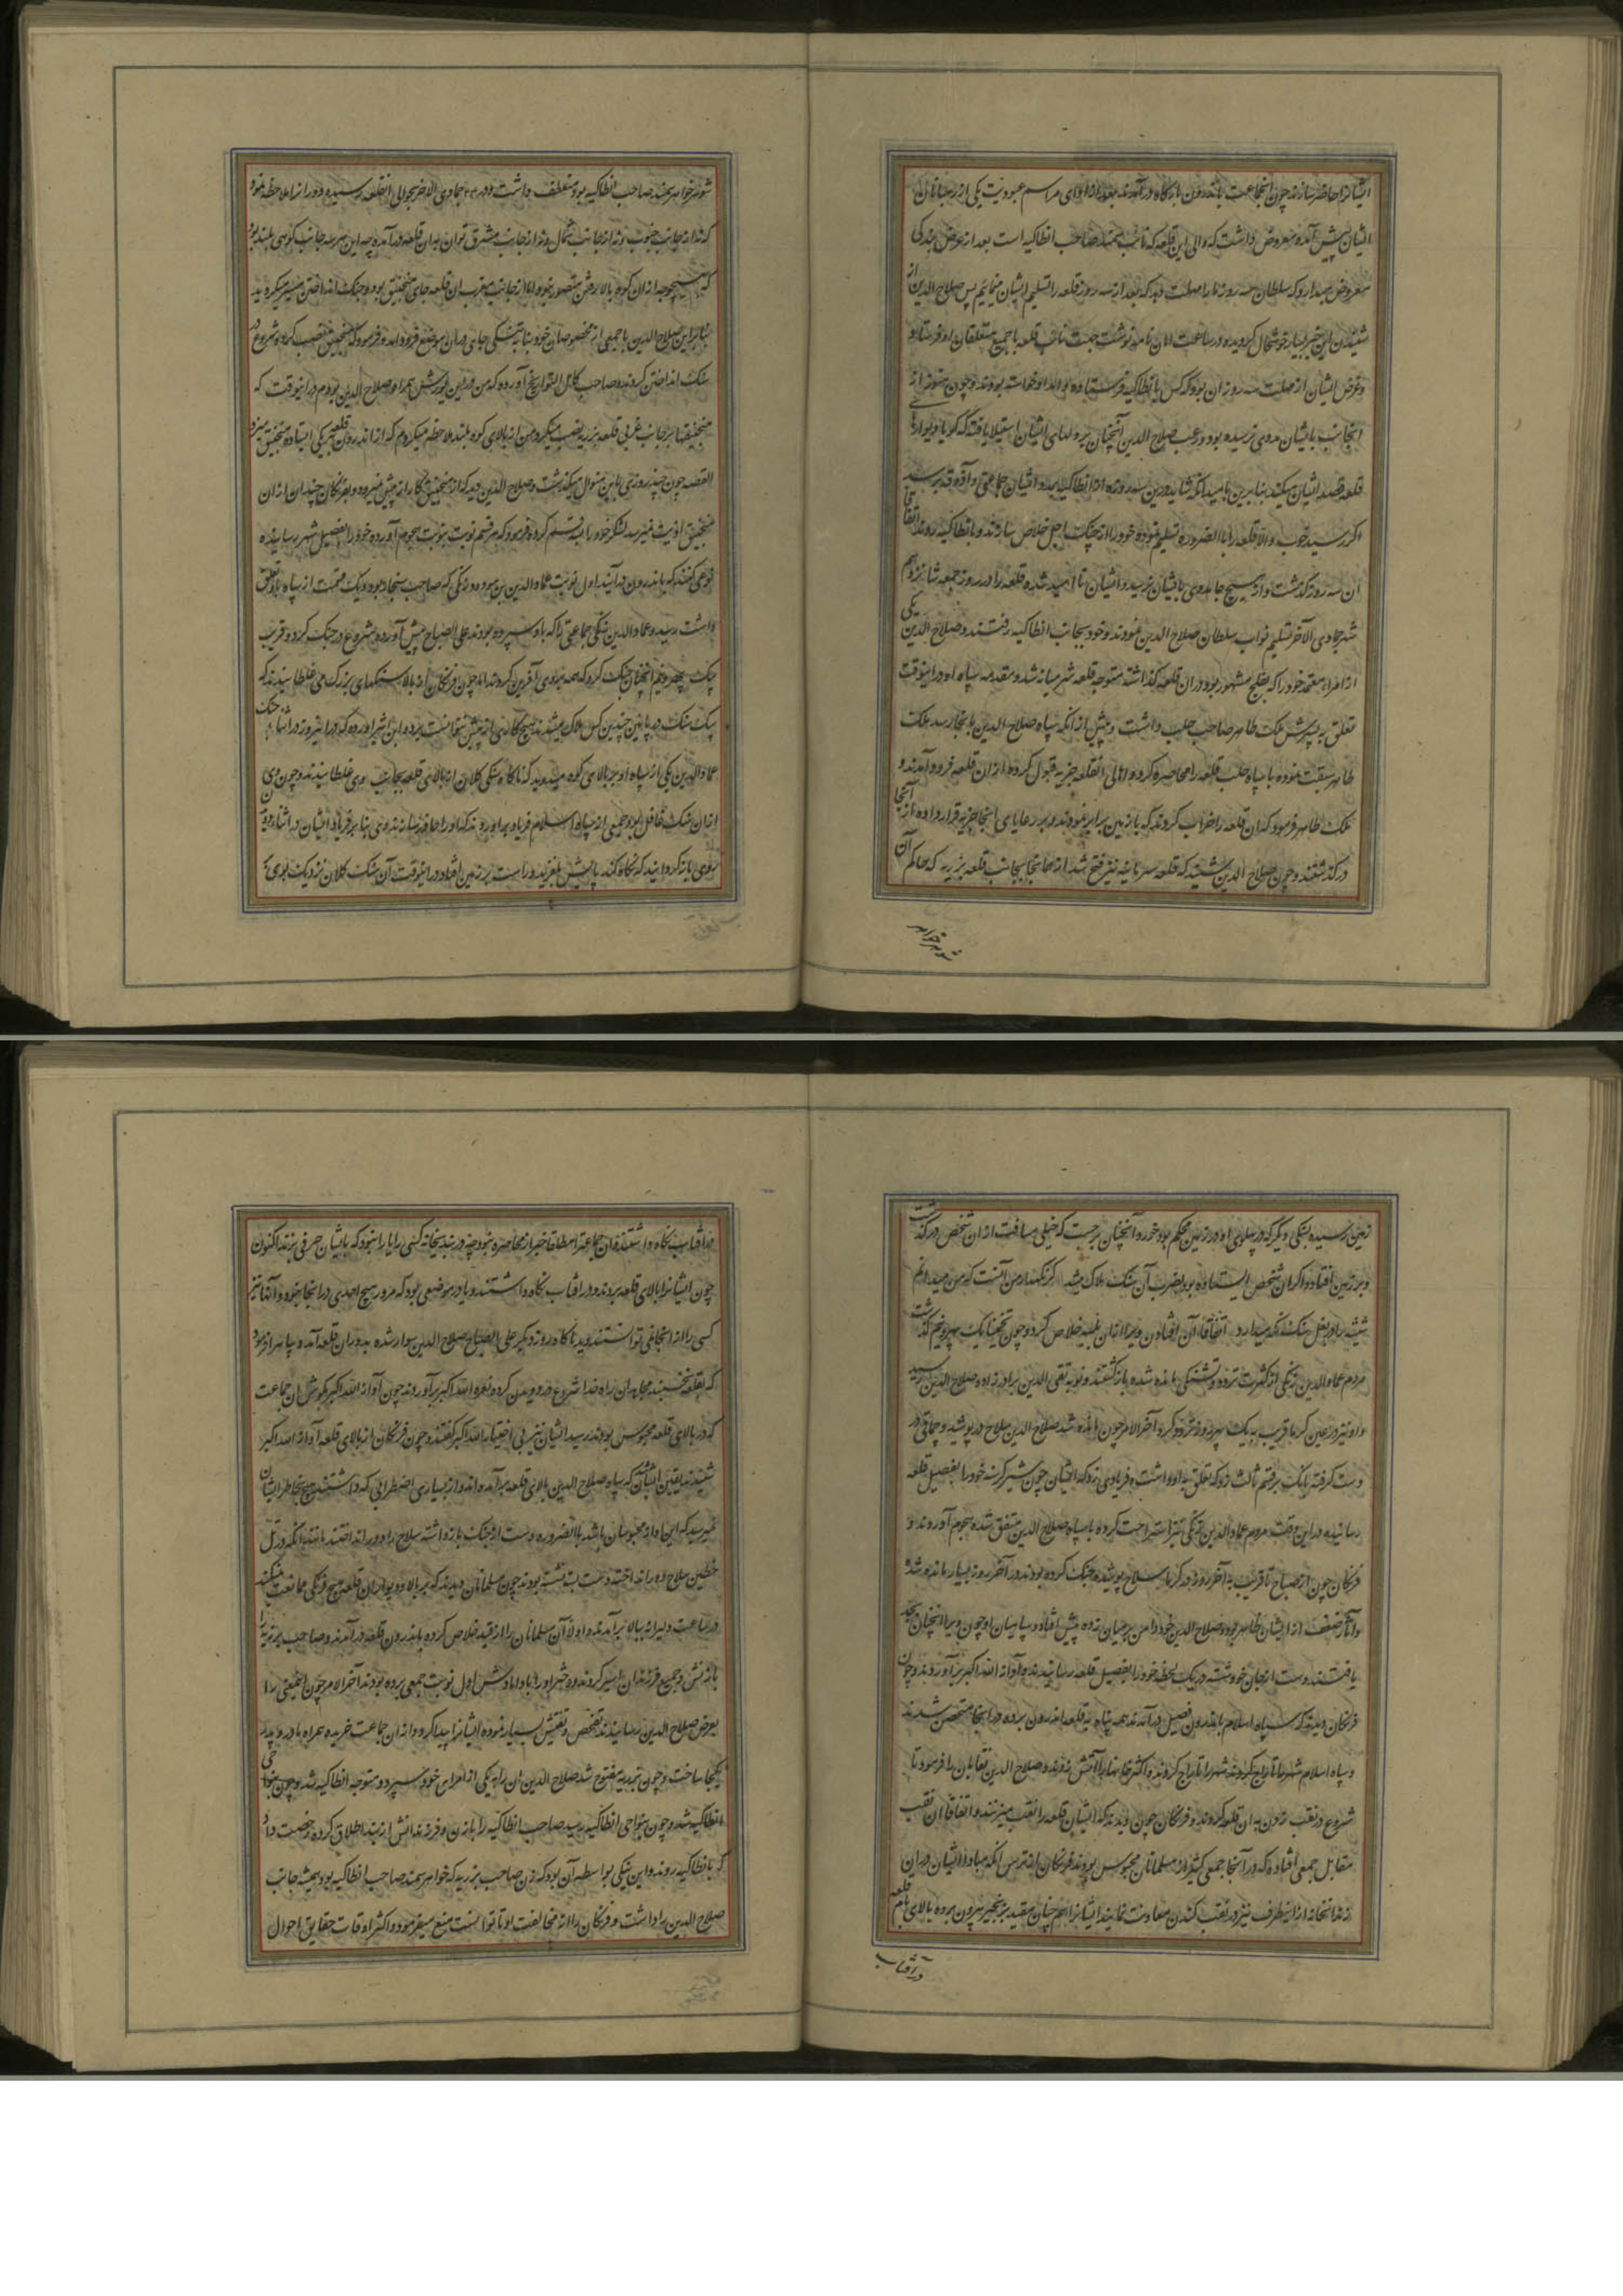 ایشانرا حاضر سازند چون انجماعت باندرون بارکاه درآمدند بعد از ادای مراسم عبودیت یکی از رهبانان
ایشان پیش آمده معروض داشت که والی این قلعه که نایب سمند صاحب انطاکیه است بعد از عرض بندکی
معروض میدارد که سلطان سه روز ما را مهلت دهد که بعد از سه روز قلعه را تسلیم ایشان مینمایم پس صلاح الدین از
شنیدن این خبر بسیار خوشحال کردیده در ساعت امان نامه نوشت جهت نایب قلعه با جمیع متعلقان او فرستاد و
و غرض ایشان از مهلت سه روز آن بود که کس بانطاکیه فرستاده بودند و مدد خواسته بودند و چون هنوز از
انجانب بایشان مددی نرسیده بود و رعب صلاح الدین آنچنان بر دلهای ایشان استیلا یافته که کویا دیوارهای
قلعه قصد ایشان میکنند بنابرین بامید انکه شاید درین سه روز از انطاکیه مدد ایشان جماعتی
اکر رسید خوب و الا قلعه را بالضروره تسلیم نموده خود را از چنک اجل خلاص سازند و بانطاکیه روند اتفاقا
آن سه روز کذشت و از هیچ جا مددی بایشان نرسید و ایشان ناامید شده قلعه را در روز جمعه شانزدهم
شهر جمادی الآخر تسلیم نواب سلطان صلاح الدین نمودند و خود بجانب انطاکیه رفتند و صلاح الدین یکی
از امراء معتمد خود را که بقلج مشهور بود در ان قلعه کذاشته متوجه قلعه سرمانیه شد و مقدمه سپاه او در اینوقت
تعلق به پسرش ملک ظاهر صاحب حلب داشت و پیش از انکه سپاه صلاح الدین بانجا رسد ملک
ظاهر سبقت نموده با سپاه حلب قلعه را محاصره کرد و اهالی انقلعه جزیه قبول کرده از ان قلعه فرود آمدند و
ملک ظاهر فرمود که ان قلعه را خراب کردند که با زمین برابر نمودند و بر رعایای انجا جزیه قرار داده از آنجا
در کذشتند و چون صلاح الدین شنید که قلعه سرمانیه نیز فتح شد از همانجا بجانب قلعه برزیه که حاکم آن
شوهر خواهر
شوهر خواهر سمند صاحب انطاکیه بود منعطف داشت و در ۲۴ جمادی الاخر بحوالی انقلعه رسیده دور انرا ملاحظه نمود
که نه از جانب جنوب و نه از جانب شمال و نه از جانب مشرق توان بدان قلعه درآمد چه این هر سه جانب کوهی بلند بود
که بهیچ وجه از ان کوه بالا رفتن متصور نبود اما از جانب مغرب ان قلعه جای منجنیق بود و جنک انداختن میسر میکردید
بنابراین صلاح الدین با جمعی از مخصوصان خود بنابر تنکی جای در ان موضع فرود امده فرمود که منجنیق نصب کرده شروع در
سنک انداختن کردند و صاحب کامل التواریخ آورده که من درین یورش همراه صلاح الدین بودم در اینوقت که
منجنیقها بر جانب غربی قلعه برزیه نصب میکرد من از بالای کوه بلند ملاحظه میکردم که از اندرون قلعه یکی ایستاده منجنیق میزد
القصه چون چند روزی باین منوال میکذشت و صلاح الدین دید که از منجنیق کار از پیش نمیرود و بفرنکان چندان از ان
منجنیق اذیت نمیرسد لشکر خود را سه قسم کرده فرمود که هر قسم نوبت بنوبت هجوم آورده خود را بفصیل شهر رسانیده
نوعی کنند که باندرون درآیند اول نوبت عماد الدین بن مودود زنکی که صاحب سنجار بود و یک قسمت از سپاه باو تعلق
داشت رسید و عماد الدین زنکی جماعتی را که باو سپرده بودند علی الصباح پیش آورده شروع در جنک کرد و قریب
بیک پهر و نیم انچنان جنک کرد که همه بر وی آفرین کردند اما چون فرنکان از بالا سنکهای بزرک می غلطانیدند که
بیک سنک در پائین چندین کس هلاک میشدند هیچ کاری از پیش نتوانست برد ابن اثیر آورده که در انروز در اثناء جنک
عماد الدین یکی از سپاه او بر بالای کوه میدوید که ناکاه سنکی کلان از بالای قلعه بجانب وی غلطانیدند و چون وی
ازان سنک غافل بود جمعی از سپاه اسلام فریاد براوردند که او را حاضر سازند وی بنابر فریاد ایشان در اثناء دویدن
روی باز کردانید که نکاه کند پایش لغزید و راست بر زمین افتاد در اینوقت آن سنک کلان نزدیک بوی
زمین رسیده بسنکی دیکر که در پهلوی او در زمین محکم بود خورد و آنچنان برجست که خیلی مسافت از ان شخص درکذشت
و بر زمین افتاد و اکر ان شخص ایستاده بود بضرب آن سنک هلاک میشد کر نکهدار من آنست که من میدانم
شیشه را در بغل سنک نکه میدارد اتفاقا آن افتادن ویرا از ان بلیه خلاص کرد و چون تخمینا یک پهر و نیم کذشت
مردم عماد الدین زنکی از کثرت تردد و تشنکی مانده شده بازکشتند و نوبه تقی الدین برادرزاده صلاح الدین رسید
و او نیز در عین کرما قریب به یک پهر روز تردد کرد آخر الامر چون مانده شد صلاح الدین سلاح در پوشیده چماقی در
دست کرفته بانک بر قسم ثالث زد که تعلق به او داشت و فریادی زد که ایشان چون شیر کرسنه خود را بفصیل قلعه
رسانیدند در این وقت مردم عماد الدین زنکی نیز استراحت کرده با سپاه صلاح الدین متفق شده هجوم آوردند و
فرنکان چون از صباح تا قریب به آخر روز در کرما سلاح پوشیده جنک کرده بودند در آخر روز بسیار مانده شدند
و آثار ضعف از ایشان ظاهر بود و صلاح الدین خود دامن بر میان زده پیش افتاد و سپاهیان او چون ویرا انچنان بجد
یافتند دست از جان خود شسته در یک لحظه خود را بفصیل قلعه رسانیدند و آوازه الله اکبر برآوردند و چون
فرنکان دیدند که سپاه اسلام باندرون فصیل درآمدند همه پناه به قلعه اندرون برده در انجا متحصن شدند
و سپاه اسلام شهر را تاراج کردند و اکثر خانها را آتش زدند و صلاح الدین نقابان را فرمود تا
شروع در نقب زدن به ان قلعه کردند و فرنکان چون دیدند که ایشان قلعه را نقب میزنند و اتفاقا ان نقب
مقابل جمعی افتاده که در آنجا جمعی کثیر از مسلمانان محبوس بودند فرنکان از ترس انکه مبادا ایشان در ان
زندانخانه از اینطرف نیز در نقب کندن معاونت نمایند ایشانرا هم چنان مقید بزنجیر بیرون برده بالای بام قلعه
در آفتاب
در آفتاب نکاه داشتند و ان جماعه را مطلقا خبر از محاصره نبود چه در بندیخانه کسی را یارا نبود که بایشان حرفی بزند اکنون
چون ایشانرا بالای قلعه بردند و در افتاب نکاه داشتند و با در موضعی بود که مرور هیچ احدی در انجا نبود و آنها نیز
کسی را از انجا نمی توانستند دید تا ناکاه روز دیکر علی الصباح صلاح الدین سوار شده بدور ان قلعه آمد و سپاه را فرمود
که بقلعه بچسبند مجاهدان راه خدا شروع در دویدن کرده نعره الله اکبر برآوردند چون آوازه الله اکبر بکوش ان جماعت
که در بالای قلعه محبوس بودند رسید ایشان نیز بی اختیار الله اکبر کفتند و چون فرنکان از بالای قلعه آوازه الله اکبر
شنیدند یقین ایشان شد که سپاه صلاح الدین بالای قلعه برآمده اند و از بسیاری اضطرابی که داشتند هیچ بخاطر ایشان
نمیرسید که این اوازه محبوسان باشد بالضروره دست از جنک بازداشته سلاح را دور انداختند مانند انکه در تل
حطین سلاح ها را انداخته دست بسته بودند چون مسلمانان دیدند که بر بالای دیوار ان قلعه هیچ فرنکی ممانعت نمیکند
در ساعت دلیرانه ببالا برآمدند و اولا آن مسلمانان را از قید خلاص کرده باندرون قلعه درآمدند و صاحب برزیه را
با زنش و جمیع فرزندان اسیر کردند و دختر او را با دامادش اول نوبت جمعی برده بودند آخر الامر چون اینمعنی را
بعرض صلاح الدین رسانیدند تفحص و تفتیش بسیار نموده ایشانرا پیدا کرد و از ان جماعت خریده همراه مادر و پدر
یکجا ساخت و چون برزیه مفتوح شد صلاح الدین ان را به یکی از امرای خود سپرده متوجه انطاکیه شد و چون بنواحی
انطاکیه شد و چون بنواحی انطاکیه رسید صاحب انطاکیه را با زن و فرزندانش از بند اطلاق کرده رخصت داد
که بانطاکیه روند و این نیکی بواسطه آن بود که زن صاحب برزیه که خواهر سمند صاحب انطاکیه بود همیشه جانب
صلاح الدین را داشت و فرنکان را از مخالفت او تا توانست منع میفرمود و اکثر اوقات حقایق احوال